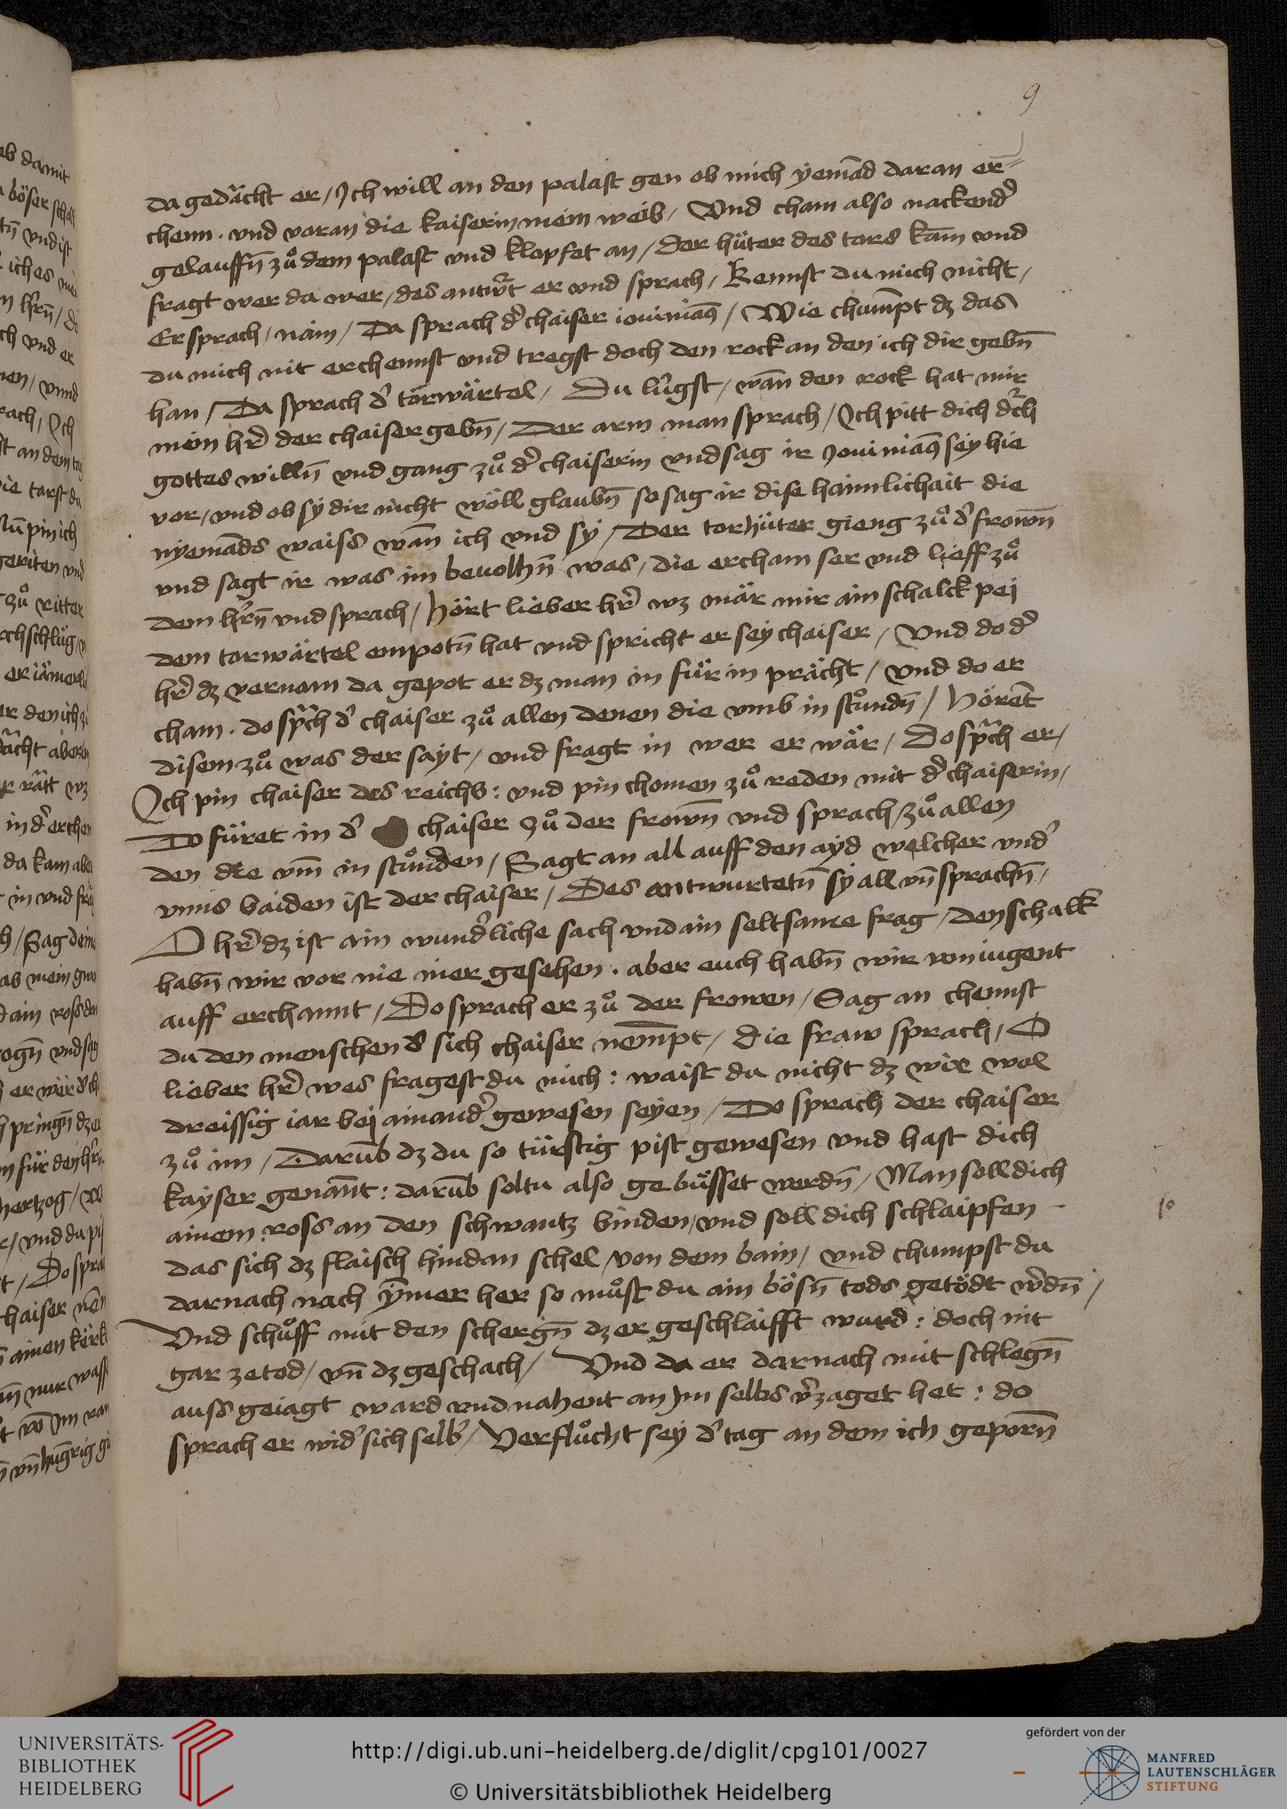 9
da gedächt er / Ich will an den palast gen ob mich yemād daran er-
chenn · vnd voran die kaiserin mein weib / Vnd cham also nackend̄
gelauffn̄ zů dem palast vnd klopfet an / der hüter des tors kam vnd
fragt wer da wer / des antw̄rt er vnd sprach / Kennst du mich nicht /
Er sprach / nain / Da sprach d̄ chaiser iouiniaꝰ / Wie chumpt dz das
du mich nit erchennst vnd tregst doch den rock an den ich dir gebn̄
han / Da sprach d̄ torwärtel / Du lügst / wān den rock hat mir
mein hr̄ der chaiser gebn̄ / Der arm man sprach / Ich pitt dich dch
gottes willn̄ vnd gang zů d̄ chaiserin vnd sag ir Jouiniaꝰ sey hie
vor / vnd ob sy dir nicht wöll glaubn̄ so sag ir dise haimlichait die
nyemāds waiss wān ich vnd sy / Der torhüter gieng zů d̄ frown̄
vnd sagt ir was im beuolhn̄ was / die ercham ser vnd lieff zů
dem hr̄n̄ vnd sprach / Hört lieber hr̄ wz mär mir ain schalck pei
dem torwärtel empotn̄ hat vnd spricht er sey chaiser / Vnd do d̄
hr̄ dz vernam da gepot er dz man in für in prächt / Vnd do er
cham · do sp̄ch d̄ chaiser zů allen denen die vmb in stůndn̄ / Hörent
disem zů was der sayt / vnd fragt in wer er wär / Do sp̄ch er /
Ich pin chaiser des reichs : vnd pin chomen zů reden mit d̄ chaiserin /
Do füret in d̄ chaiser zů der frown̄ vnd sprach / zů allen
den die vm̄ in stůnden / Sagt an all auff den ayd welcher vnd̄
vnns baiden ist der chaiser / Des antwurtetn̄ sy all vn̄ sprachn̄ /
O hr̄ dz ist ain wund̄liche sach vnd ain seltsame frag / den schalk
habn̄ wir vor nie mer gesehen · aber euch habn̄ wir von iugent
auff erchannt / Do sprach er zů der frowen / Sag an chennst
du den menschen d̄ sich chaiser nempt / die fraw sprach / O
lieber hr̄ wes fragest du mich : waist du nicht dz wir wol
dreissig iar bej ainand̄ gewesen seyen / Do sprach der chaiser
zů im / Darūb dz du so türstig pist gewesen vnd hast dich
kayser genāt : darūb soltu also gebüsset werdn̄ / Man soll dich
ainem ross an den schwantz binden / vnd soll dich schlaipfen
das sich dz flaisch hindan schel / von dem bain / vnd chumpst du
darnach nach ȳmer her so můst du ain bösn̄ tods getödt w̄dn̄ /
Vnd schůff mit den schergn̄ dz er geschlaifft wurd : doch nit
gar ze tod / vn̄ dz geschach / Vnd da er darnach mit schlegn̄
auss geiagt ward vnd nahent an jm selbs v̄zaget het : do
sprach er wid̄ sich selb̄ / Verflůcht sey d̄ tag an dem ich geporn̄
UNIVERSITÄTS-
BIBLIOTHEK
HEIDELBERG
http://digi.ub.uni-heidelberg.de/diglit/cpg101/0027
© Universitätsbibliothek Heidelberg
gefördert von der
MANFRED
LAUTENSCHLÄGER
STIFTUNG